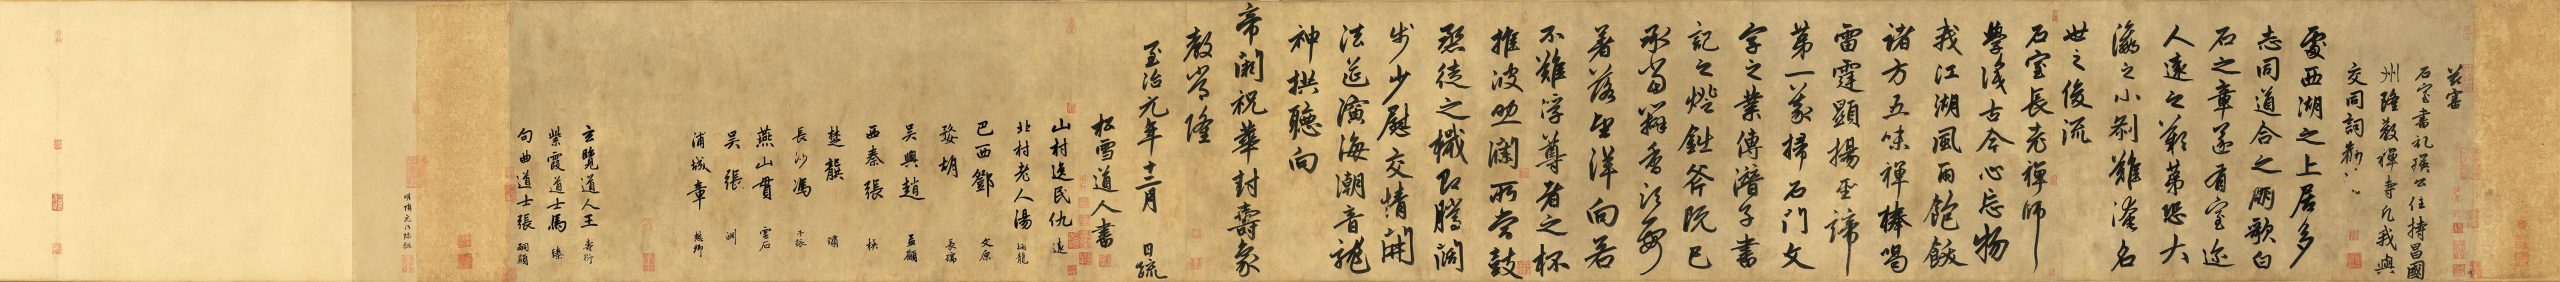 茲審
石室書記瑛公住持昌國
州隆教禪寺凡我與
交同詞勸
處西湖之上居多
志同道合之朋歌白
石之章遂有室邇
人遠之歎第恐大
瀛之小剎難淹名
世之俊流
石室長老禪師
學識古今心忘物
我江湖風雨飽飫
諸方五味禪棒喝
雷霆顯揚聖諦
第一義掃石門文
字之業傳潛子書
記之燈鈯斧既已
承當瓣香須要
著落望洋向若
不難浮尊者之杯
推波助瀾所當鼓
烝徒之檝即騰闊
步少慰交情開
法筵演海潮音龍
神拱聽向
帝闕祝華封壽象
教常隆
至治元年十二月 日疏
松雪道人書
山村逸民仇 遠
北村老人湯 炳龍
巴西鄧 文原
婺胡 長孺
吳興趙 孟頫
西秦張 楧
楚龔 璛
長沙馮 子振
燕山貫 雲石
吳張 淵
浦城章 懋卿
玄覽道人王 壽衍
紫霞道士馬 臻
句曲道士張 嗣顯
明項元汴珍秘